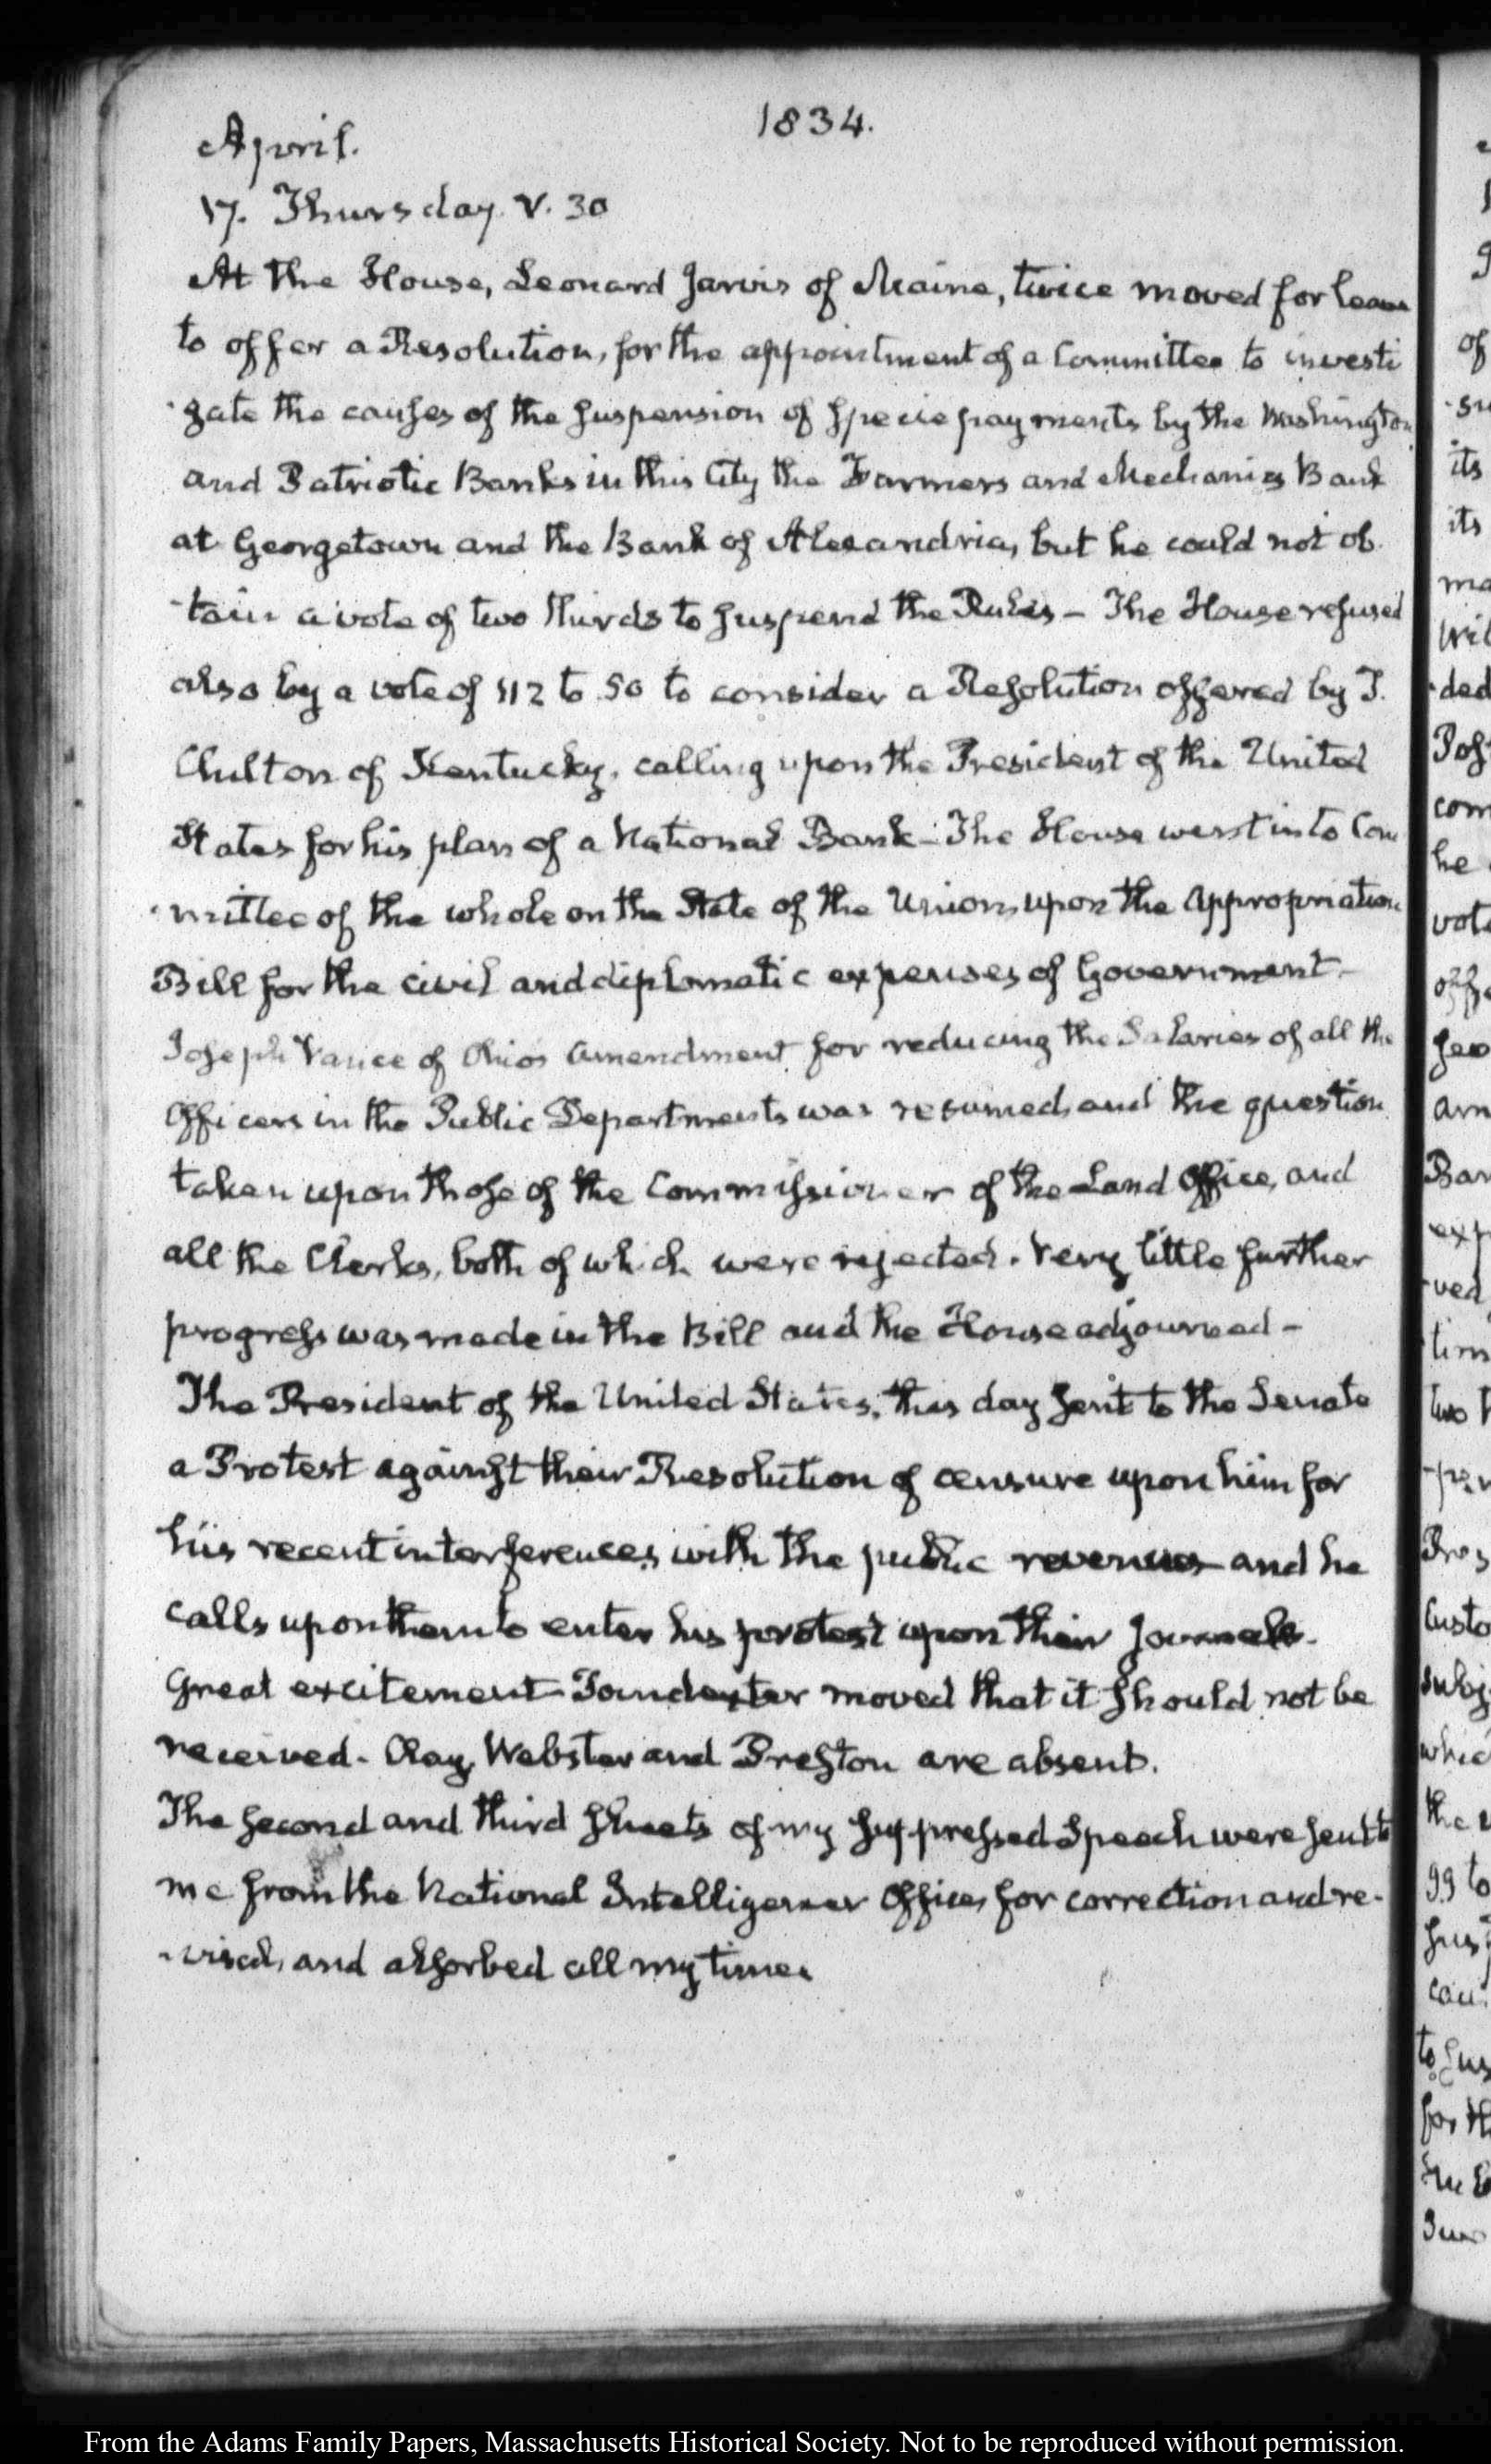 1834.
April.
17. Thursday. V. 30
At the House, Leonard Jarvis of Maine, twice moved for leave
to offer a Resolution, for the appointment of a Committee to investi
-gate the causes of the suspension of specie payments by the Washington
and Patriotic Banks in this City the Farmers and Mechanics Bank
at Georgetown and the Bank of Alexandria, but he could not ob
-tain a vote of two thirds to suspend the Rules — The House refused
also by a vote of 112 to 50 to consider a Resolution offered by T.
Chilton of Kentucky, calling upon the President of the United
States for his plan of a National Bank — The House went into Com
-mittee of the whole on the State of the Union, upon the Appropriation
Bill for the civil and diplomatic expenses of Government —
Joseph Vance of Ohios Amendment for reducing the Salaries of all the
Officers in the Public Departments was resumed, and the question
taken upon those of the Commissioner of the Land Office, and
all the Clerks, both of which were rejected. Very little further
progress was made in the Bill and the House adjourned —
The President of the United States, this day sent to the Senate
a Protest against their Resolution of censure upon him for
his recent interferences with the public revenues and he
calls upon them to enter his protest upon their Journals.
Great excitement — Poindexter moved that it should not be
received. Clay, Webster and Preston are absent.
The second and third sheets of my suppressed Speech were sent to
me from the National Intelligencer Office, for correction and re-
-visal, and absorbed all my time.
of
-su
its
its
ma
wil
-ded
Pos
com
he
vote
offe
arm
Bar
exp
-ved
tim
two
Pres
Custo
subj
which
the
99 to
sus
cau
to sus
for th
From the Adams Family Papers, Massachusetts Historical Society. Not to be reproduced without permission.